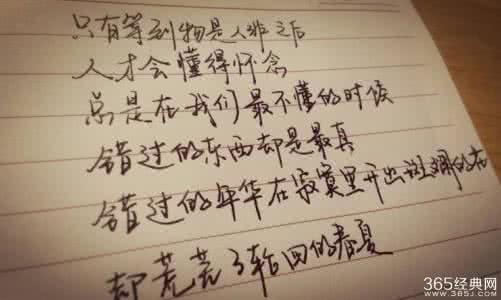 只有等到物是人非之后
人才会懂得怀念
总是在我们最不懂的时候
错过的东西却是最真
错过的年华在寂寞里开出斑斓的
却荒芜了轮回的春夏
365经典网
WWW.365J.COM